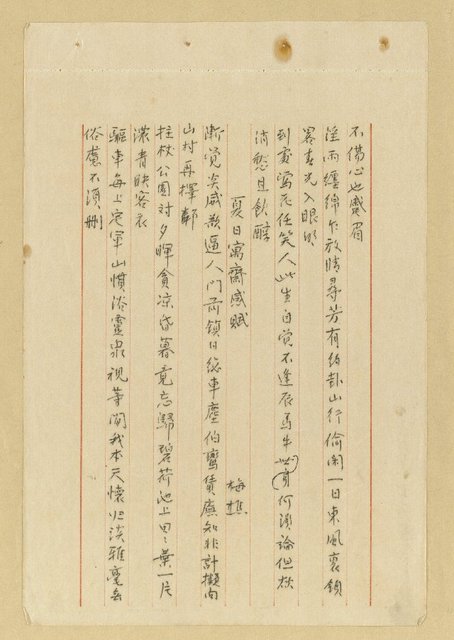 不傷心也感眉
淫雨纏綿乍放晴尋芳有約卦山行偷閑一日東風裏鎖
畧春光入眼明
到處寫花任笑人此生自覺不逢辰馬牛世何須論但求
消愁且飲醇
夏日寓齋感賦
梅樵
漸覺炎威欺逼人門前鎮日總車塵伯鸞賃廡知非計擬向
山村再擇鄰
拄杖公園對夕暉貪凉昏暮竟忘歸碧荷池上田田葉一片
濃青映客衣
驅車每上定軍山慣浴靈泉視等閑我本天懷归淡雅毫無
俗慮不須刪